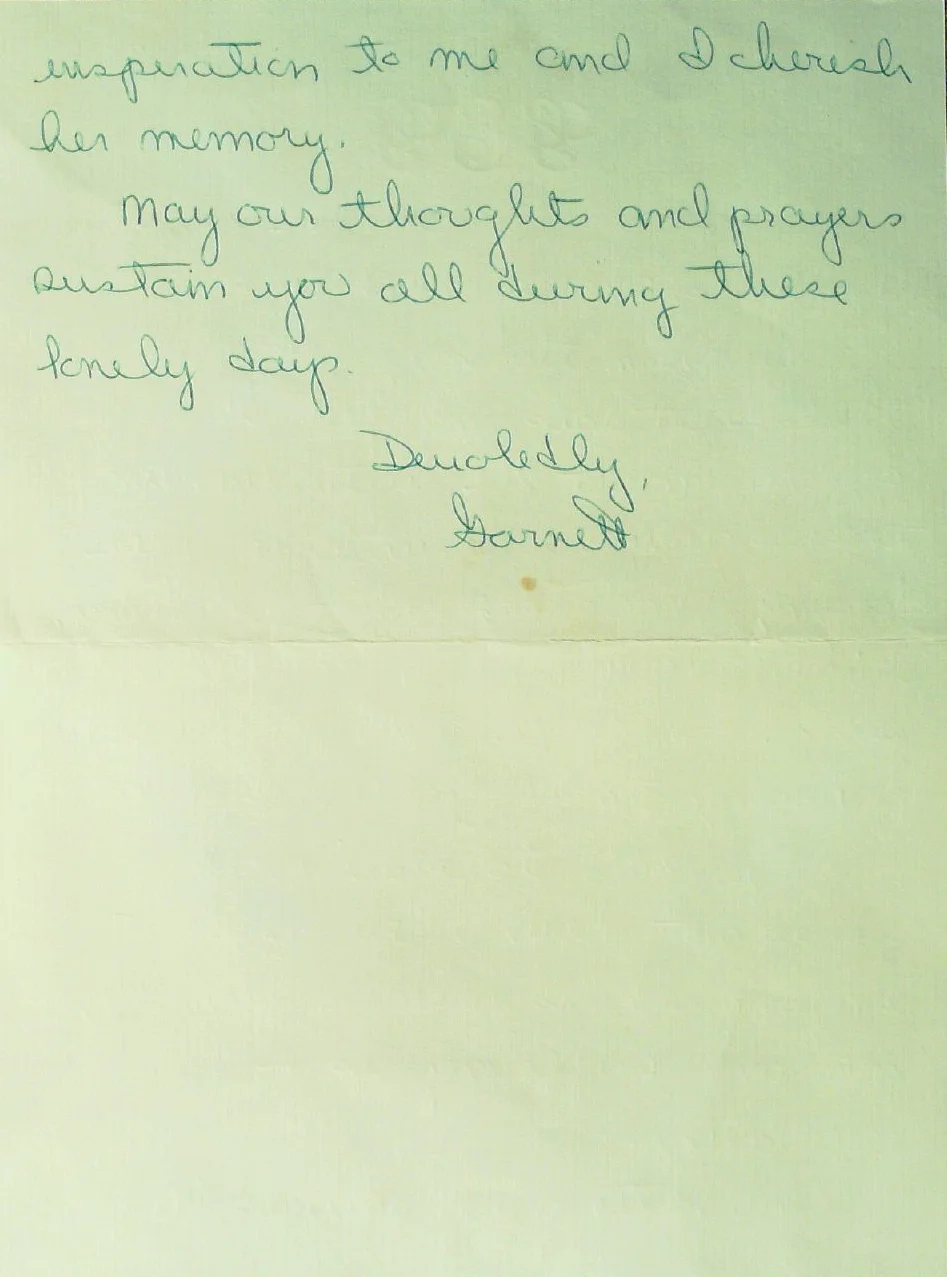 inspiration to me and I cherish
her memory.
May our thoughts and prayers
sustain you all during these
lonely days.
Devotedly,
Garnett